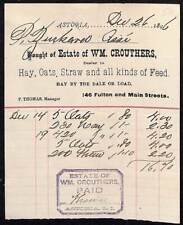 ASTORIA, Dec 26 1896
Bought of Estate of WM. CROUTHERS,
Dealer in
Hay, Oats, Straw and all kinds of Feed.
HAY BY THE BALE OR LOAD.
F. THOMAS, Manager 146 Fulton and Main Streets.
Dec 14 5 Oats 1 80 4.00
230 Hay 1 2.30
19 420 4.20
5 Oats 1 80 4.00
200 2.20
16.70
ESTATE OF
WM. CROUTHERS,
PAID
ASTORIA, L. I.